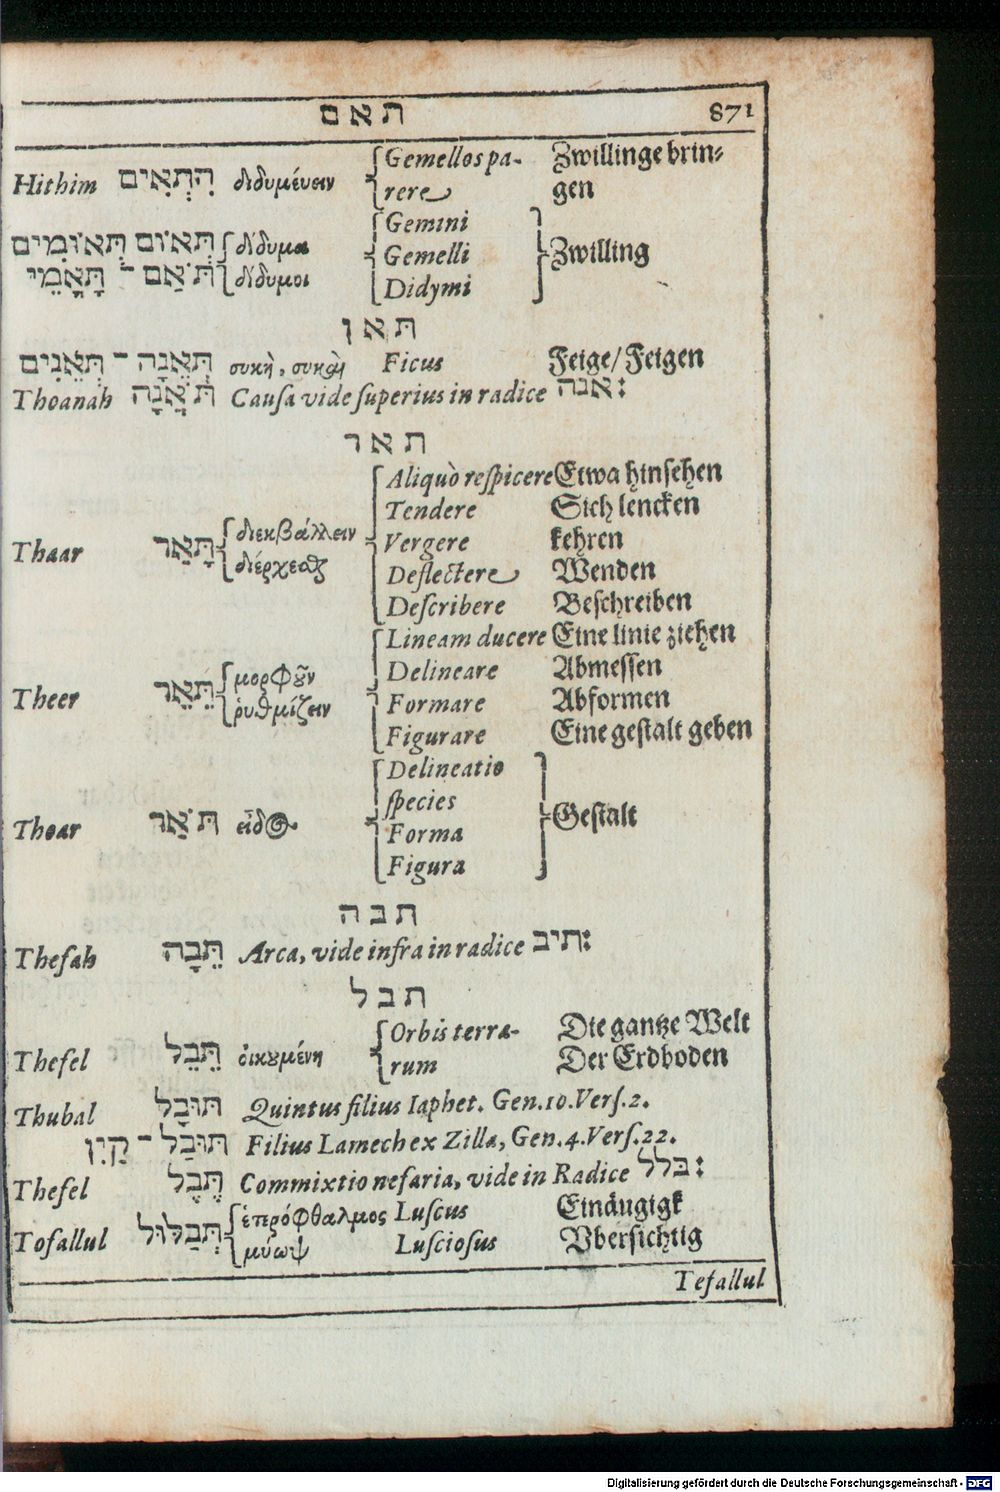 תאם 871
Hithim הִתְאִים διδυμέυειν Gemellos pa- Zwillinge brin-
rere gen
Gemini
תְּאוֹם תְּאוֹמִים δίδυμαι Gemelli Zwilling
תֹּאַם - תָּאֳמֵי δίδυμοι Didymi
תאן
תְּאֵנָה - תְּאֵנִים συκῆ, συκαῖ Ficus Feige/Feigen
Thoanah תֹּאֲנָה Causa vide superius in radice אנה:
תאר
Aliquò respicere Etwa hinsehen
Tendere Sich lencken
Thaar תָּאַר διεκβάλλειν Vergere kehren
διέρχεσθαι Deflectere Wenden
Describere Beschreiben
Lineam ducere Eine linie ziehen
μορφοῦν Delineare Abmessen
Theer תֵּאֵר ῥυθμίζειν Formare Abformen
Figurare Eine gestalt geben
Delineatio
species
Thoar תֹּאַר εἶδος Forma Gestalt
Figura
תבה
Thefah תֵּבָה Arca, vide infra in radice תיב:
תבל
Orbis terra- Die gantze Welt
Thefel תֵּבֵל ὀικουμένη rum Der Erdboden
Thubal תּוּבָל Quintus filius Iaphet. Gen.10.Vers.2.
תּוּבַל - קַיִן Filius Lamech ex Zilla, Gen.4.Vers.22.
Thefel תֶּבֶל Commixtio nefaria, vide in Radice בלל:
ἑτερόφθαλμος Luscus Einäugigk
Tofallul תְּבַלּוּל μύωψ Lusciosus Ubersichtig
Tefallul
Digitalisierung gefördert durch die Deutsche Forschungsgemeinschaft - DFG